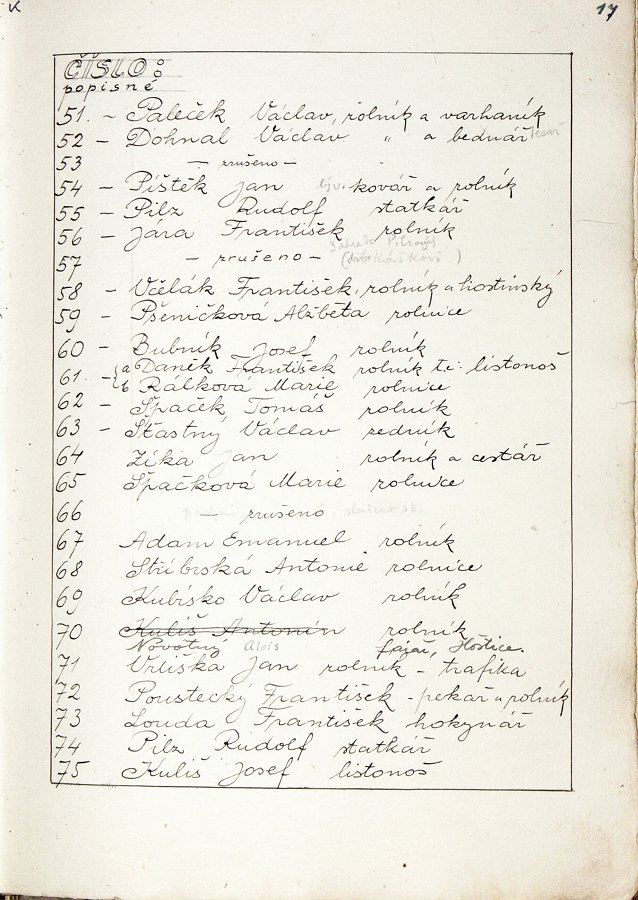 K
17
ČÍSLO:
popisné
51. - Paleček Václav, rolník a varhaník
52 - Dohnal Václav " a bednář
53 - zrušeno -
54 - Pištěk Jan kovář a rolník
55 - Pilz Rudolf statkář
56 - Jára František rolník
57 - zrušeno -
58 - Včelák František, rolník a hostinský
59 - Pšeničková Alžběta rolnice
60 - Bubník Josef rolník
61. - a Daněk František rolník t.č. listonoš
b Rálková Marie rolnice
62 - Špaček Tomáš rolník
63 - Šťastný Václav zedník
64 Zíka Jan rolník a cestář
65 Špačková Marie rolnice
66 - zrušeno
67. Adam Emanuel rolník
68 Stříbrská Antonie rolnice
69 Kubisko Václav rolník
70 Kuliš Antonín rolník
Novotný Alois Hoštice.
71 Vrliška Jan rolník - trafika
72 Poustecký František - pekař a rolník
73 Louda František hokynář
74 Pilz Rudolf statkář
75 Kuliš Josef listonoš